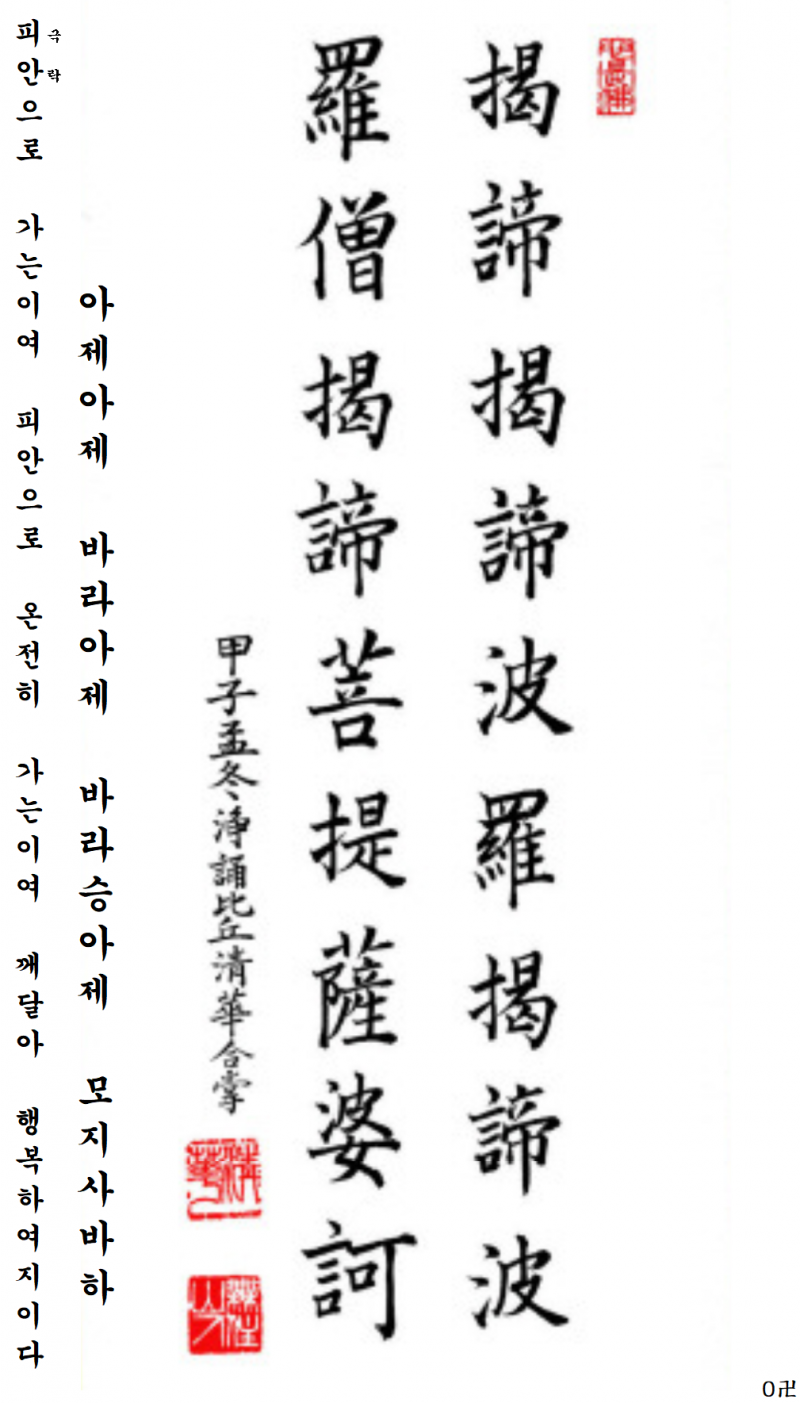 揭諦揭諦波羅揭諦波
羅僧揭諦菩提薩婆訶
甲子孟冬淨誦比丘清華合掌
아제아제 바라아제 바라승아제 모지사바하
극락
피안으로 가는이여 피안으로 온전히 가는이여 깨달아 행복하여지이다
0卍